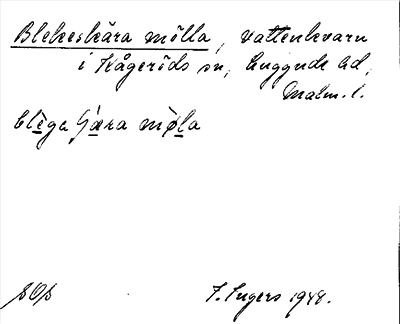 Blekeskära mölla, vattenkvarn
i Kågeröds sn, Luggude hd,
Malm. l.
blèga ʃæra mø̀la
SOS
I. Ingers 1944.